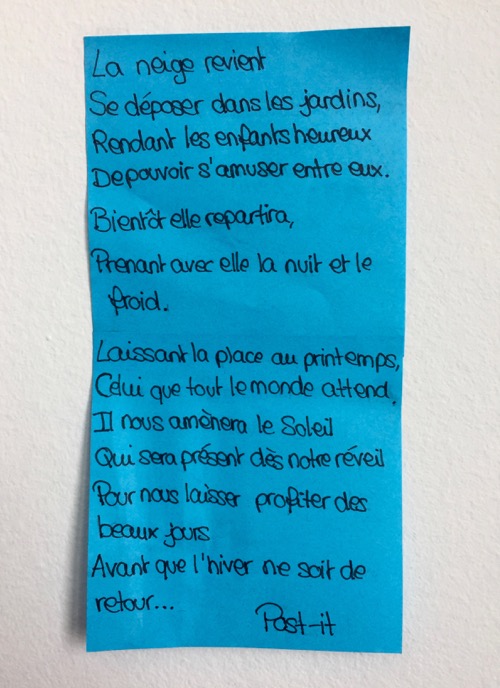 La neige revient
Se déposer dans les jardins,
Rendant les enfants heureux
De pouvoir s'amuser entre eux.
Bientôt elle repartira,
Prenant avec elle la nuit et le
froid.
Laissant la place au printemps,
Celui que tout le monde attend,
Il nous amènera le Soleil
Qui sera présent dès notre réveil
Pour nous laisser profiter des
beaux jours
Avant que l'hiver ne soit de
retour...
Post-it